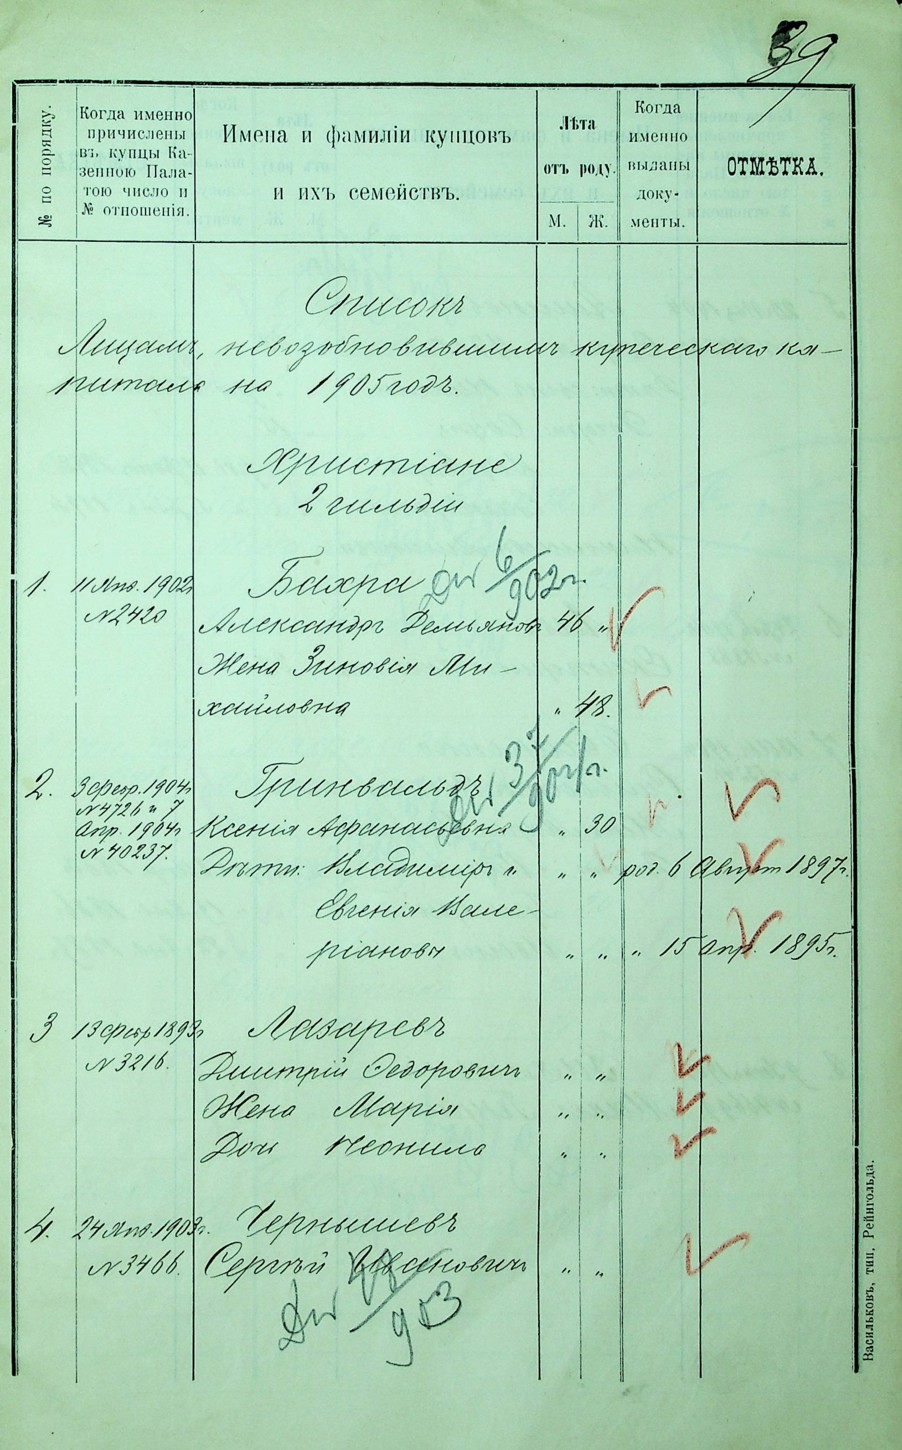 39
№ по порядку.
Когда именно
причислены
въ купцы Ка-
зенною Пала-
тою число и
№ отношенія.
Имена и фамиліи купцовъ
и ихъ семействъ.
Лѣта
отъ роду.
М. Ж.
Когда
именно
выданы
доку-
менты.
ОТМѢТКА.
Списокъ
Лицамъ, невозобновившимъ купеческаго ка-
питала на 1905 годъ.
Христіане
2 гильдіи
1. 11 Янв. 1902г Бахра
№ 2420 Александръ Демьяновъ 46 "
6/902 г.
Жена Зиновія Ми-
хайловна " 48.
2. 3 Февр. 1904г Гринвальдъ
37/904 г.
№ 4726 и 7
Апр. 1904г Ксенія Афанасьевна " 30
№ 40237. Дѣти: Владиміръ и " " род. 6 Август 1897г.
Евгенія Вале-
ріановы " " " 15 Апр. 1895г.
3 13 Февр 1893г Лазаревъ
№ 3216. Дмитрій Федоровичъ " "
Жена Марія " "
Доч Неонила " "
4. 24 Янв. 1903г. Чернышевъ
№ 3466. Сергѣй Ивановичъ " "
903
Васильковъ, тип. Рейнгольда.